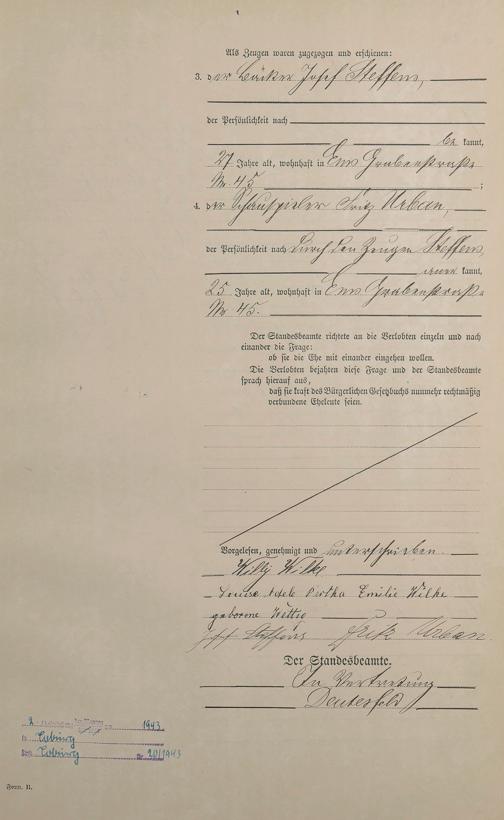 Als Zeugen waren zugezogen und erschienen:
3. der Bäcker Josef Steffens,
der Persönlichkeit nach
be kannt,
27 Jahre alt, wohnhaft in Ems Grabenstraße
Nr. 45 ;
4. der Schauspieler Fritz Urban,
der Persönlichkeit nach durch den Zeugen Steffens,
kannt,
25 Jahre alt, wohnhaft in Ems Grabenstraße
Nr. 45.
Der Standesbeamte richtete an die Verlobten einzeln und nach
einander die Frage:
ob sie die Ehe mit einander eingehen wollen.
Die Verlobten bejahten diese Frage und der Standesbeamte
sprach hierauf aus,
daß sie kraft des Bürgerlichen Gesetzbuchs nunmehr rechtmäßig
verbundene Eheleute seien.
Vorgelesen, genehmigt und unterschrieben
Willy Wilke
Louise Adele Bertha Emilie Wilke
geborene Wettig
Josef Steffens Fritz Urban
Der Standesbeamte.
In Vertretung
2. 1943
in Coburg
Coburg 20/1943
Form. B.